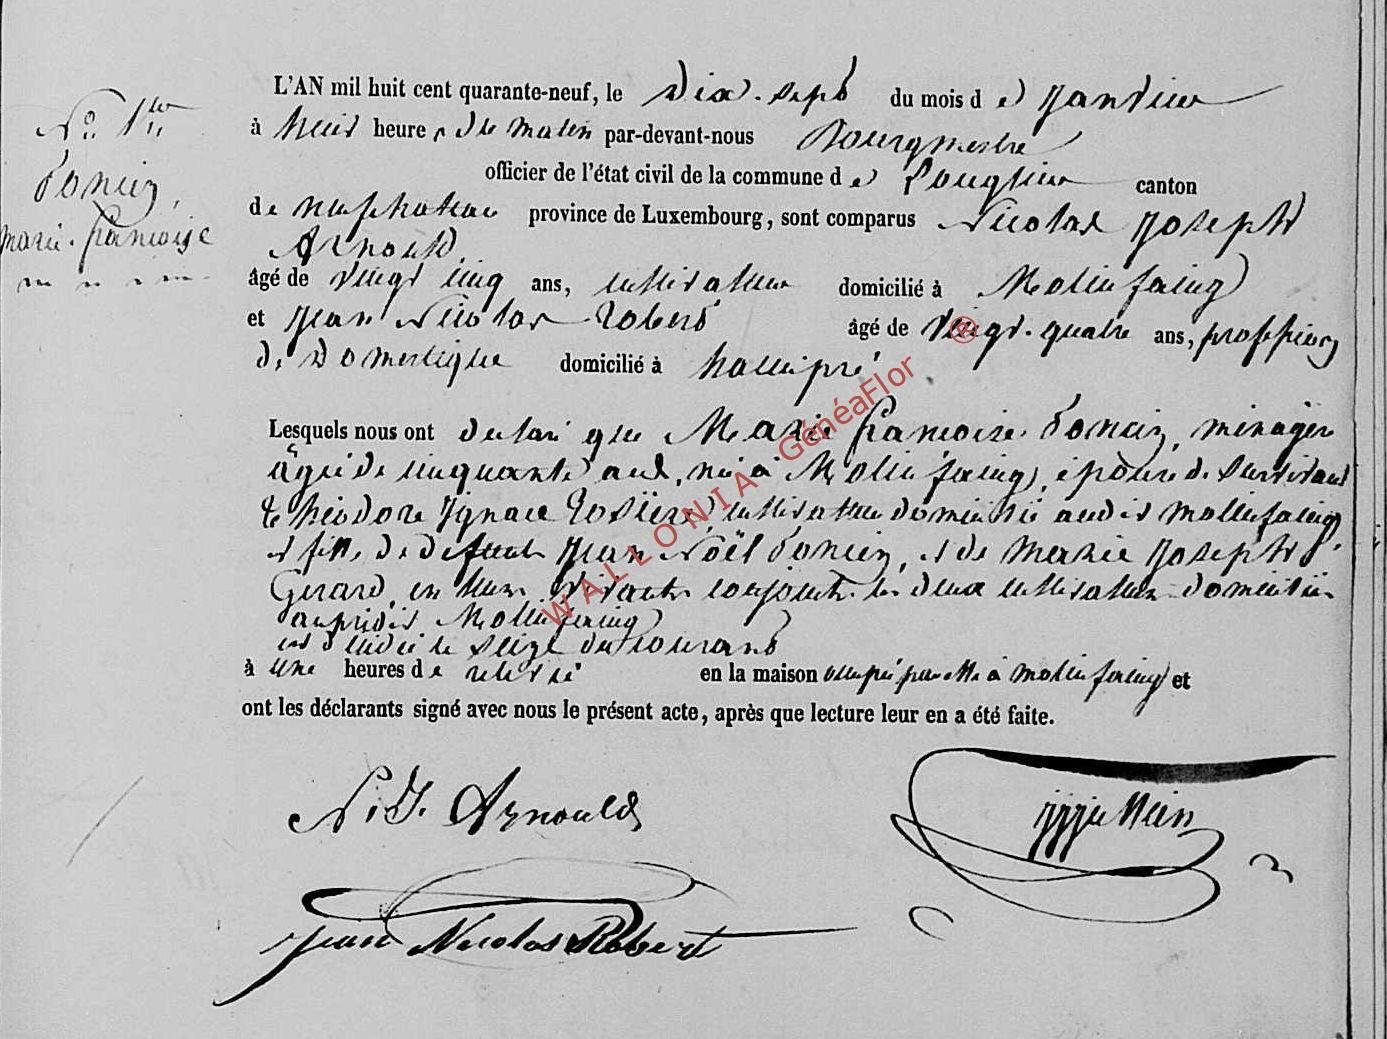 L'AN mil huit cent quarante-neuf, le dix-sept du mois de janvier
N° 1er
à huit heures du matin par-devant-nous Bourgmestre
Poncin,
officier de l'état civil de la commune de Longlier canton
marie-françoise
de neufchateau province de Luxembourg, sont comparus Nicolas Joseph
Arnould
âgé de vingt cinq ans, cultivateur domicilié à Molinfaing
et Jean Nicolas Robert âgé de vingt-quatre ans, profession
de Domestique domicilié à hallipré
Lesquels nous ont declaré que Marie françoise Poncin, ménagère
âgée de cinquante ans, née à Molinfaing, épouse de survivant
théodore Ignace Rosière, cultivateur domicilié audit Molinfaing,
et fille de défunts Jean Noël Poncin, et de Marie Joseph
Gerard, en leur vivant conjoints les deux cultivateurs domiciliés
audit Molinfaing
est décédée le seize du courant
à une heures de relevée en la maison occupée par elle à Molinfaing et
ont les déclarants signé avec nous le présent acte, après que lecture leur en a été faite.
WALLONIA GénéaFlor ®
N. J. Arnould
Jean Nicolas Robert